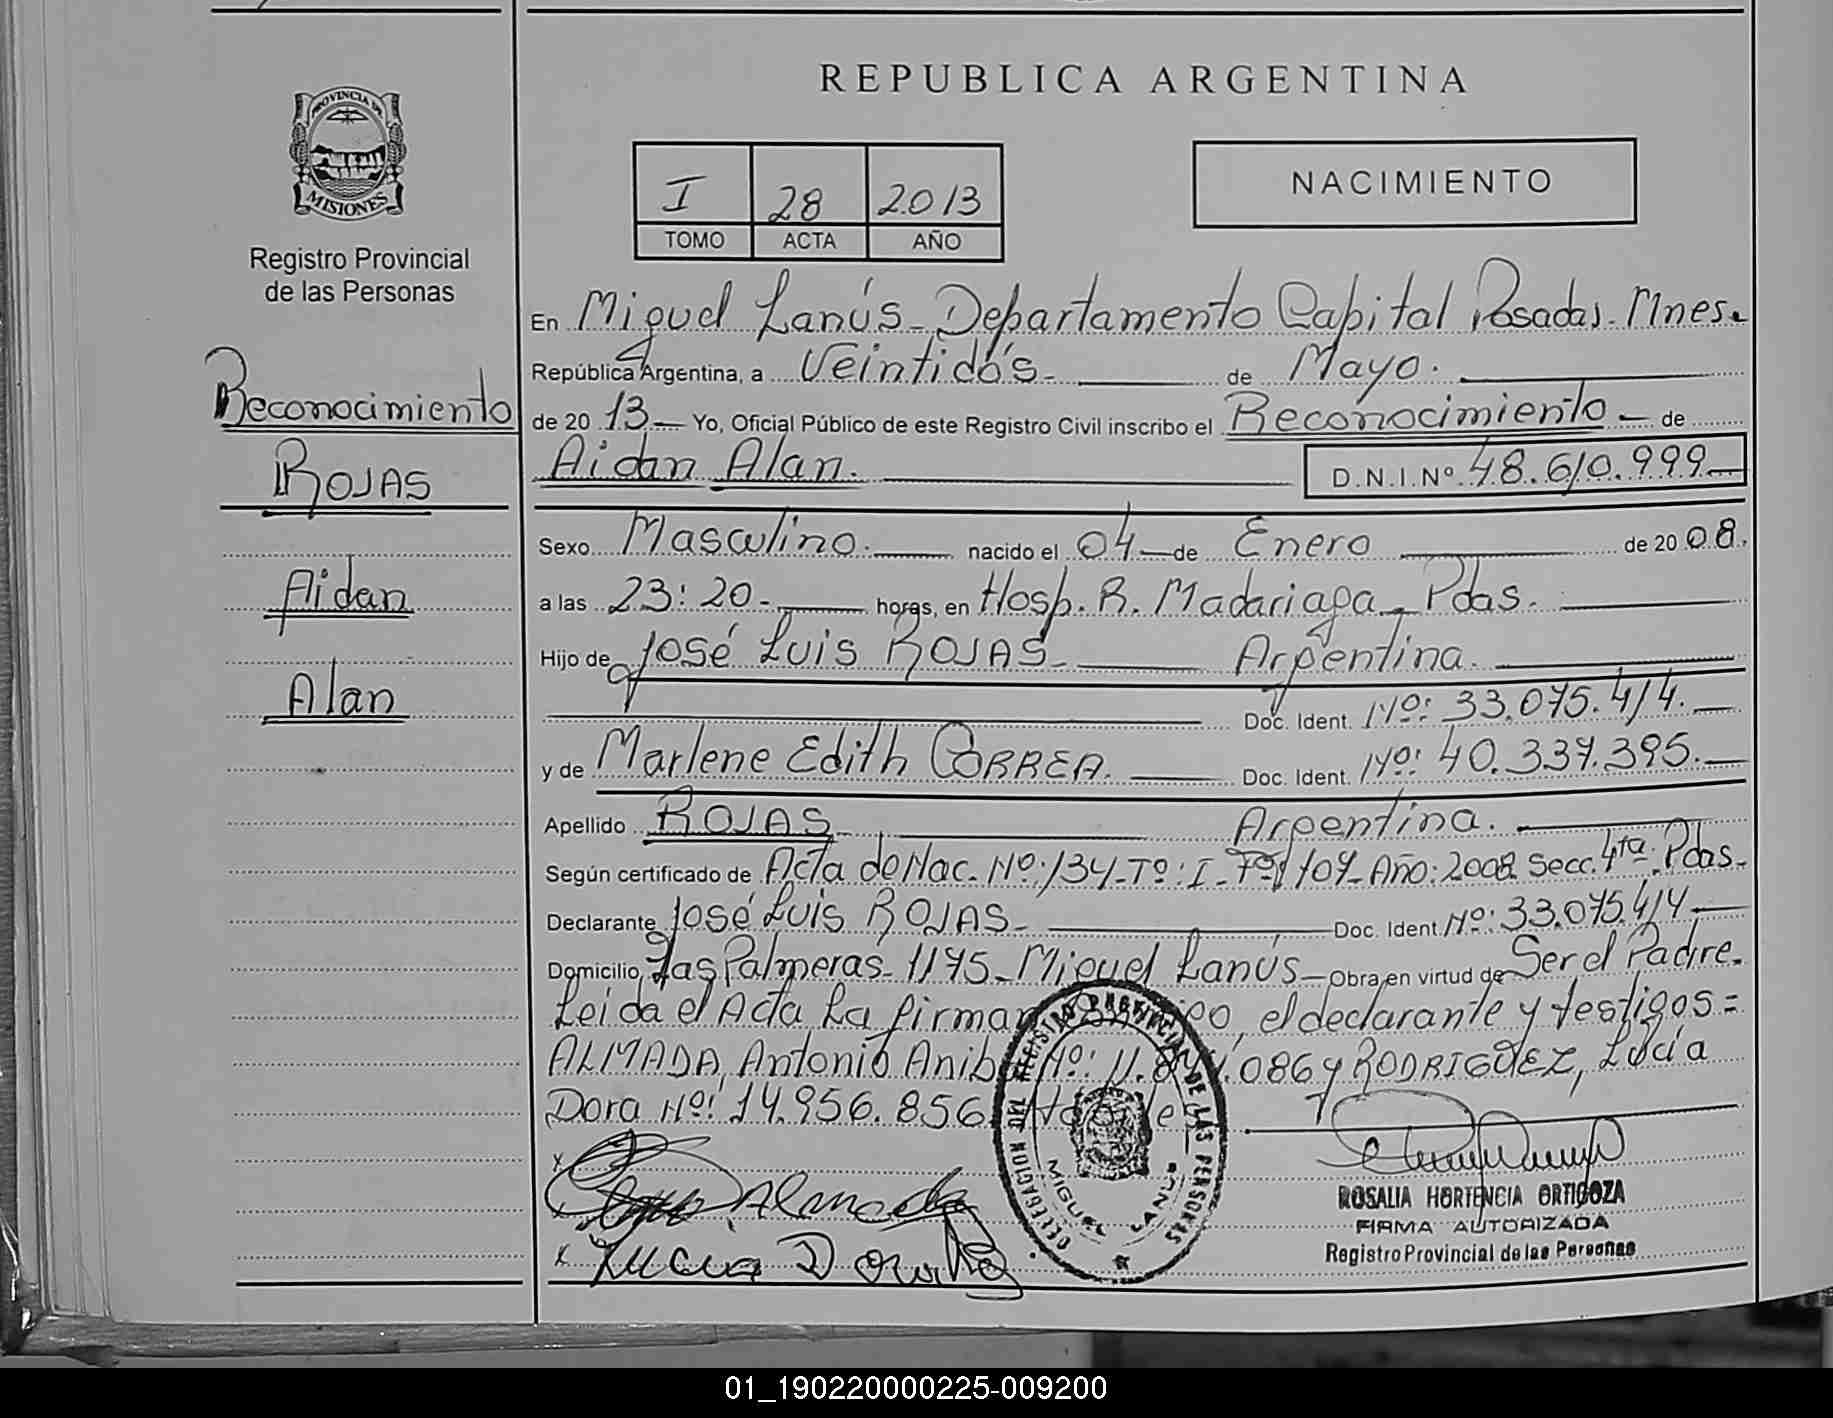 REPUBLICA ARGENTINA
PROVINCIA DE
MISIONES
Registro Provincial
de las Personas
I 28 2013
TOMO ACTA AÑO
NACIMIENTO
Reconocimiento
ROJAS
Aidan
Alan
En Miguel Lanús - Departamento Capital Posadas. Mnes.
República Argentina, a Veintidós - de Mayo.
de 20 13 - Yo, Oficial Público de este Registro Civil inscribo el Reconocimiento - de
Aidan Alan. D.N.I.Nº 48.610.999
Sexo Masculino. nacido el 04 de Enero de 20 08.
a las 23:20 - horas, en Hosp. R. Madariaga - Pdas.
Hijo de José Luis ROJAS - Argentina.
Doc. Ident. Nº: 33.075.414.
y de Marlene Edith CORREA. Doc. Ident. Nº: 40.337.395.
Apellido ROJAS - Argentina.
Según certificado de Acta de Nac. Nº: 134 - Tº: I - Fº 107 - Año: 2008 Secc. 4ta. Pdas.
Declarante José Luis ROJAS - Doc. Ident. Nº: 33.075.414
Domicilio Las Palmeras - 1175 - Miguel Lanús - Obra en virtud de Ser el Padre.
Leída el Acta La firman el declarante y testigos =
ALMADA, Antonio Nº: 086 y RODRIGUEZ, Lucía
Dora Nº: 14.956.856
x
Almada
x Lucia D
DELEGACION DEL REGISTRO PROVINCIAL DE LAS PERSONAS
MIGUEL LANUS
ROSALIA HORTENCIA ORTIGOZA
FIRMA AUTORIZADA
Registro Provincial de las Personas
01_190220000225-009200